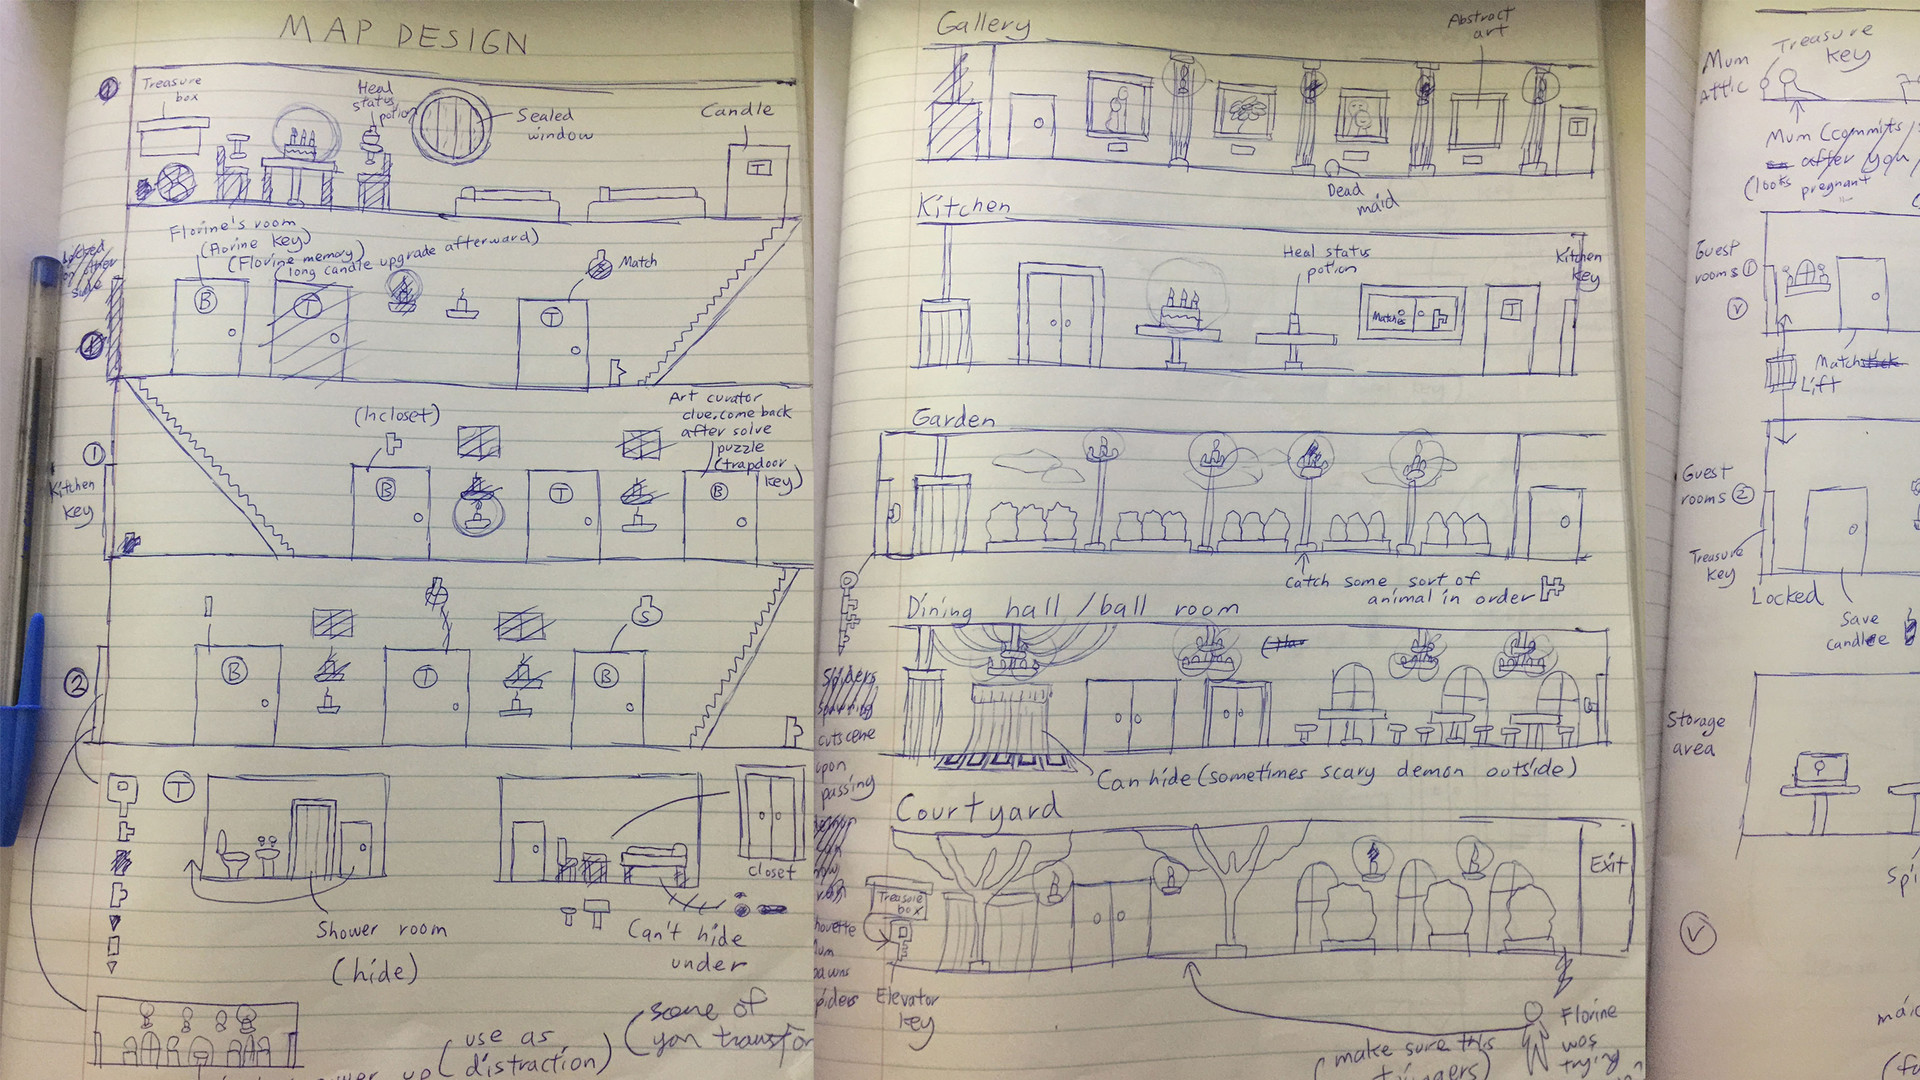 MAP DESIGN
Treasure
box
Heal
status
potion
Sealed
window
Candle
T
Florine's room
(florine key)
(Florine memory)
(long candle upgrade afterward)
Match
B
T
T
1
Kitchen
key
(In closet)
Art curator
clue. come back
after solve
puzzle
(trapdoor
key)
B
T
B
2
S
B
T
B
T
Shower room
(hide)
closet
Can't hide
under
use as
distraction)
(some of
you transfor
Gallery
Abstract
art
T
Dead
maid
Kitchen
Heal status
potion
Kitchen
key
Matches
T
Garden
Catch some sort of
animal in order
Dining hall / ball room
cutscene
upon
passing
Can hide (sometimes scary demon outside)
Courtyard
Exit
Treasure
box
Elevator
key
Florine
was
trying
(make sure this
triggers)
Mum
Attic
Treasure
key
Mum (commits
after you
(looks pregnant
Guest
rooms 1
V
Match
Lift
Guest
rooms 2
Treasure
key
Locked
Save
candle
Storage
area
V